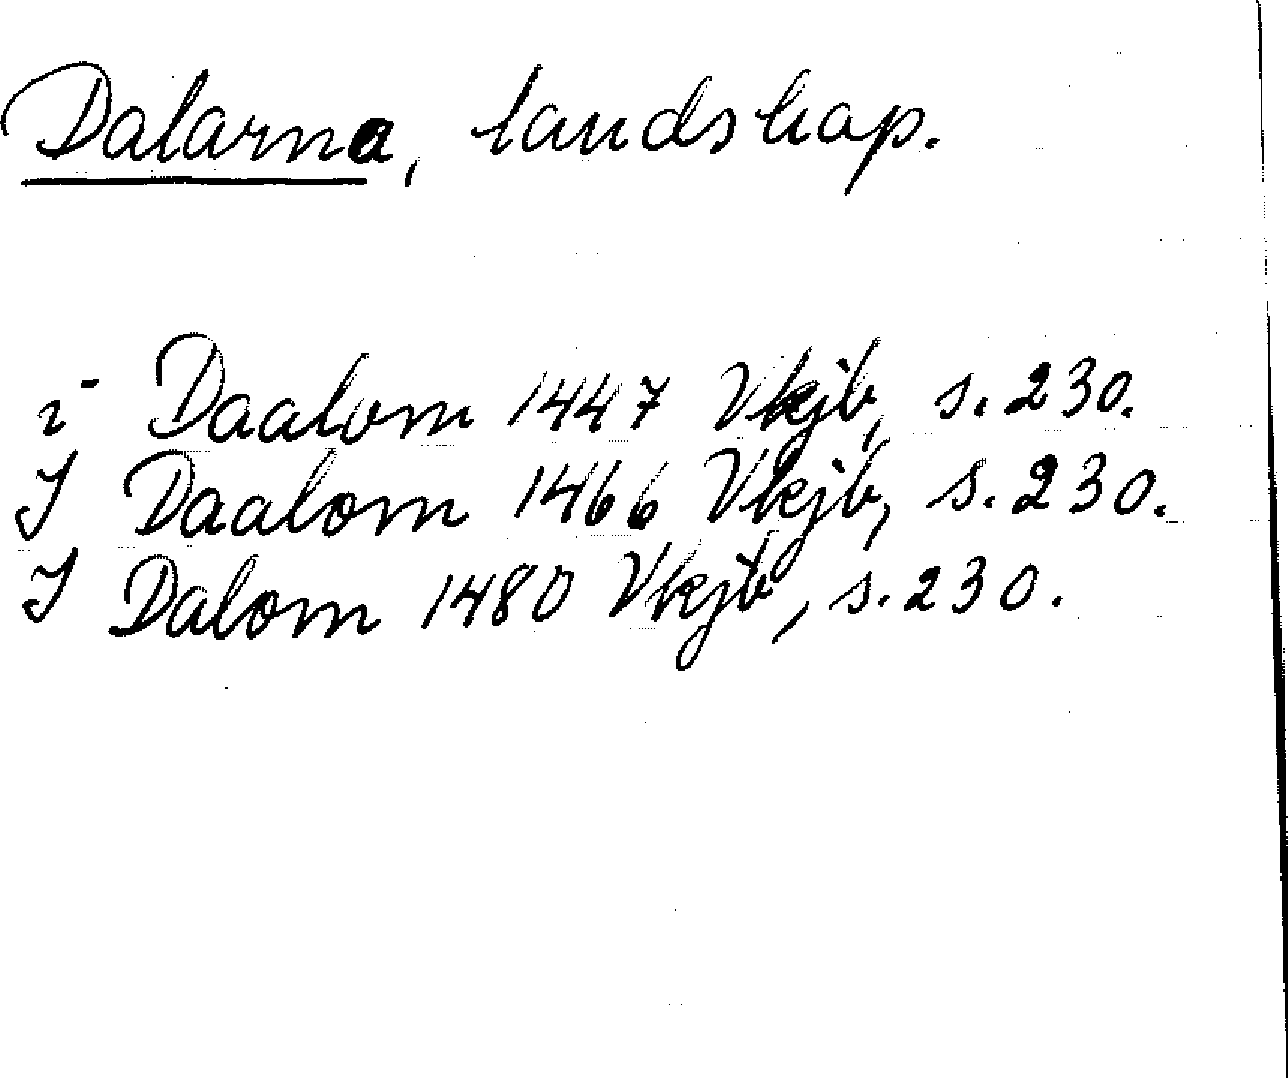 Dalarna, landskap.
i Daalom 1447 Vkjb, s. 230.
I Daalom 1466 Vkjb, s. 230.
I Dalom 1480 Vkjb, s. 230.